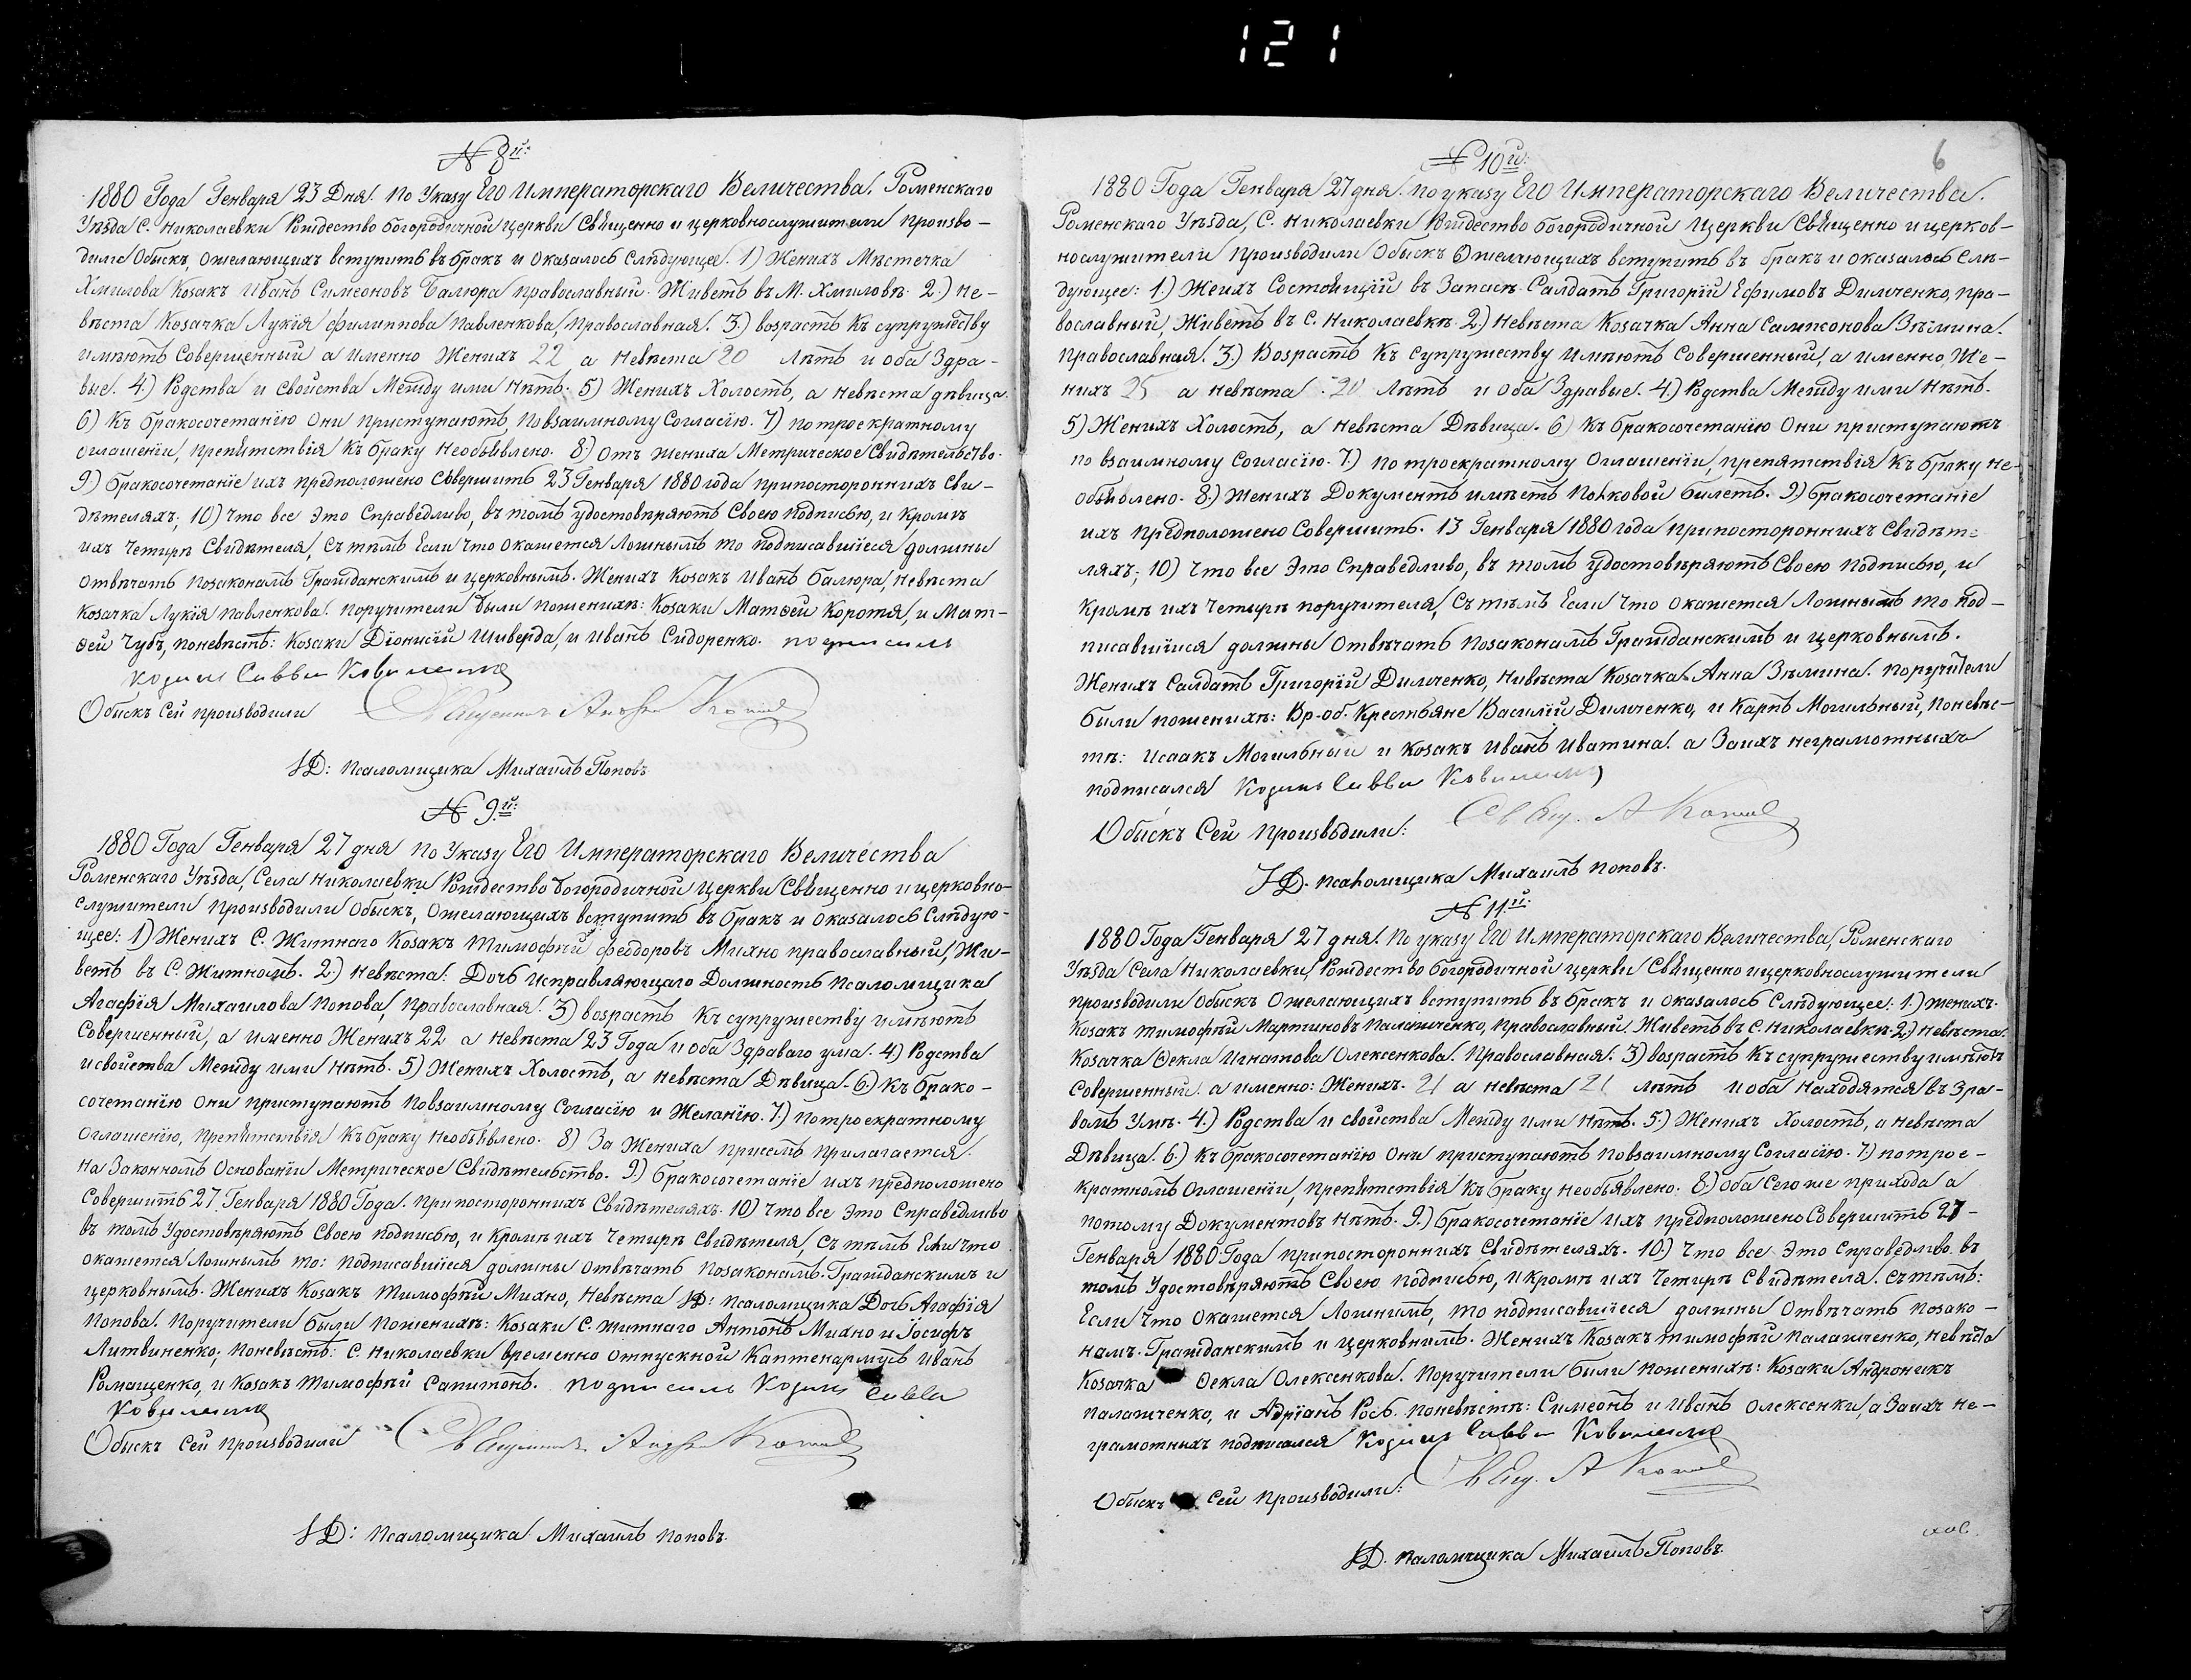 121
№ 8й:
1880 Года Генваря 23 Дня. По Указу Его Императорскаго Величества. Роменскаго
Уѣзда С. Николаевки Рождество Богородичной церкви Священно и церковнослужители произво-
дили Обыскъ, ожелающихъ вступить въ бракъ и оказалось слѣдующее. 1) Женихъ Мѣстечка
Хмилова Козакъ Иванъ Симеоновъ Балюра православный. Живетъ въ М. Хмиловѣ. 2.) Не-
вѣста Козачка Лукія Филиппова Павленкова, Православная. 3.) возрастъ къ супружеству
имѣютъ Совершенный а именно Женихъ 22 а Невѣста 20 лѣтъ и оба Здра-
вые. 4.) Родства и Свойства Между ими Нѣтъ. 5) Женихъ Холостъ, а невѣста дѣвица.
6) Къ бракосочетанію Они приступаютъ, повзаимному Согласію. 7) потроекратному
оглашеніи, препятствія Къ браку Необъявлено. 8.) Отъ жениха Метрическое Свидѣтельство.
9.) бракосочетаніе ихъ предположено Совершить 23 Генваря 1880 года припостороннихъ Сви-
дѣтеляхъ; 10) Что все Это Справедливо, въ томъ удостовѣряютъ Своею подписью, и Кромѣ
ихъ Четырѣ Свидѣтеля, Съ тѣмъ Если Что окажется Ложнымъ то подписавшіеся должны
отвѣчать позаконамъ Гражданскимъ и церковнымъ. Женихъ Козакъ Иванъ Балюра, Невѣста
Козачка Лукія Павленкова. Поручители были поженихѣ: Козаки Матѳей Коротя, и Мат-
ѳей Чубъ, поневѣстѣ: Козаки Діонисій Шиверда, и Иванъ Сидоренко. подписалъ
Козакъ Савва
Обыскъ Сей производили Священникъ Андрей
И.Д: псаломщика Михаилъ Поповъ.
№ 9.й:
1880 Года Генваря 27 дня По Указу Его Императорскаго Величества
Роменскаго Уѣзда, Села Николаевки Рождество Богородичной церкви Священно и церковно-
служители производили Обыскъ, Ожелающихъ вступить въ бракъ и оказалось Слѣдую-
щее: 1) Женихъ С. Житнаго Козакъ Тимофѣй Феодоровъ Михно православный, Жи-
ветъ въ С. Житномъ. 2.) Невѣста: Дочь Исправляющаго Должность Псаломщика
Агафія Михаилова Попова, православная. 3) возрастъ къ супружеству имѣютъ
Совершенный, а именно Женихъ 22 а Невѣста 23 Года и оба Здраваго ума. 4.) Родства
и свойства Между ими Нѣтъ. 5) Женихъ Холостъ, а невѣста Дѣвица. 6.) Къ брако-
сочетанію Они приступаютъ Повзаимному Согласію и Желанію. 7.) Потроекратному
Оглашенію, препятствія къ браку Необъявлено. 8) За Жениха присемъ прилагается
На Законномъ Основаніи Метрическое Свидѣтельство. 9.) бракосочетаніе ихъ предположено
Совершить 27 Генваря 1880 Года. Припостороннихъ Свидѣтеляхъ. 10) Что все Это Справедливо
въ томъ Удостовѣряютъ Своею подписью, и Кромѣ ихъ Четырѣ Свидѣтеля, Съ тѣмъ Если Что
окажется Ложнымъ то: подписавшіеся должны отвѣчать Позаконамъ. Гражданскимъ и
церковнымъ. Женихъ Козакъ Тимофѣй Михно, Невѣста И.Д: псаломщика Дочь Агафія
Попова. Поручители были Поженихѣ: Козаки С. Житнаго Антонъ Михно и Іосифъ
Литвиненко; Поневѣстѣ: С. Николаевки временно отпускной Каптенармусъ Иванъ
Ромащенко, и Козакъ Тимофѣй Сапитонъ. подписалъ Козакъ Савва
Обыскъ Сей производили Священникъ Андрей
И.Д: псаломщика Михаилъ Поповъ.
6
№ 10й:
1880 Года Генваря 27 дня. По указу Его Императорскаго Величества.
Роменскаго Уѣзда, С. Николаевки Рождество Богородичной Церкви Священно и церков-
нослужители Производили Обыскъ Ожелающихъ вступить въ бракъ и оказалось Слѣ-
дующее: 1.) Жеихъ Состоящій въ Запасѣ Салдатъ Григорій Ефимовъ Димченко, пра-
вославный, Живетъ въ С. Николаевкѣ. 2.) Невѣста Козачка Анна Сампсонова Зѣмина.
православная. 3.) Возрастъ Къ Супружеству Имѣютъ Совершенный, а именно Же-
нихъ 25 а невѣста 20 Лѣтъ и Оба Здравые. 4.) Родства Между ими Нѣтъ.
5) Женихъ Холостъ, а Невѣста Дѣвица. 6) Къ бракосочетанію Они приступаютъ
по взаимному Согласію. 7) по троекратному Оглашеніи, препятствія Къ браку не-
объявлено. 8.) Женихъ Документъ имѣетъ Полковой билетъ. 9.) бракосочетаніе
ихъ предположено Совершить. 13 Генваря 1880 года припостороннихъ Свидѣте-
ляхъ; 10) Что все Это Справедливо, въ томъ Удостовѣряютъ Своею подписью, и
Кромѣ ихъ Четырѣ поручителя, Съ тѣмъ Если Что окажется Ложнымъ то под-
писавшіися должны Отвѣчать позаконамъ Гражданскимъ и церковнымъ.
Женихъ Салдатъ Григорій Димченко, Нивѣста Козачка Анна Зѣмина. поручители
были поженихѣ: Вр.-об. Крестьяне Василій Димченко, и Карпъ Могильный, поневѣс-
тѣ: Исаакъ Могильный и Козакъ Иванъ Иватина. а Заихъ неграмотныхъ
подписался Козакъ Савва
Обыскъ Сей производили: Свящ. А
И.Д. псаломщика Михаилъ Поповъ.
№ 11.й:
1880 Года Генваря 27 дня. По указу Его Императорскаго Величества, Роменскаго
Уѣзда Села Николаевки, Рождество Богородичной церкви Священно ицерковнослужители
производили Обыскъ Ожелающихъ вступить въ бракъ и оказалось Слѣдующее: 1.) женихъ.
Козакъ Тимофѣй Мартиновъ Палажченко, православный. Живетъ въ С. Николаевкѣ. 2.) Невѣста.
Козачка Ѳекла Игнатова Олексенкова. Православная. 3.) возрастъ Къ супружеству имѣютъ
Совершенный. а именно: Женихъ. 21 а невѣста 21 лѣтъ и оба находятся въ Зра-
вомъ Умѣ. 4.) Родства и свойства Между ими Нѣтъ. 5.) Женихъ Холостъ, а невѣста
Дѣвица. 6.) Къ бракосочетанію Они приступаютъ Повзаимному Согласію. 7) потрое-
кратномъ Оглашеніи, препятствія къ браку необъявлено: 8) Оба Сегоже прихода а
потому Документовъ Нѣтъ. 9.) бракосочетаніе ихъ предположено Совершить 27-
Генваря 1880 Года припостороннихъ Свидѣтеляхъ. 10.) Что все Это Справедливо въ
томъ Удостовѣряютъ Своею подписью, и кромѣ ихъ Четырѣ Свидѣтеля. Съ тѣмъ:
Если Что Окажется Ложнимъ, то подписавшіеся должны Отвѣчать позако-
намъ. Гражданскимъ и церковнимъ. Женихъ Козакъ Тимофѣй Палажченко, Невѣста
Козачка Ѳекла Олексенкова. Поручители били поженихѣ: Козаки Андроникъ
Палажченко, и Адріанъ Рось. поневѣстѣ: Симеонъ и Иванъ Олексенки, а Заихъ не-
грамотнихъ подписался Козакъ Савва
Обыскъ Сей производили: Свящ. А
И.Д. паломщика Михаилъ Поповъ.